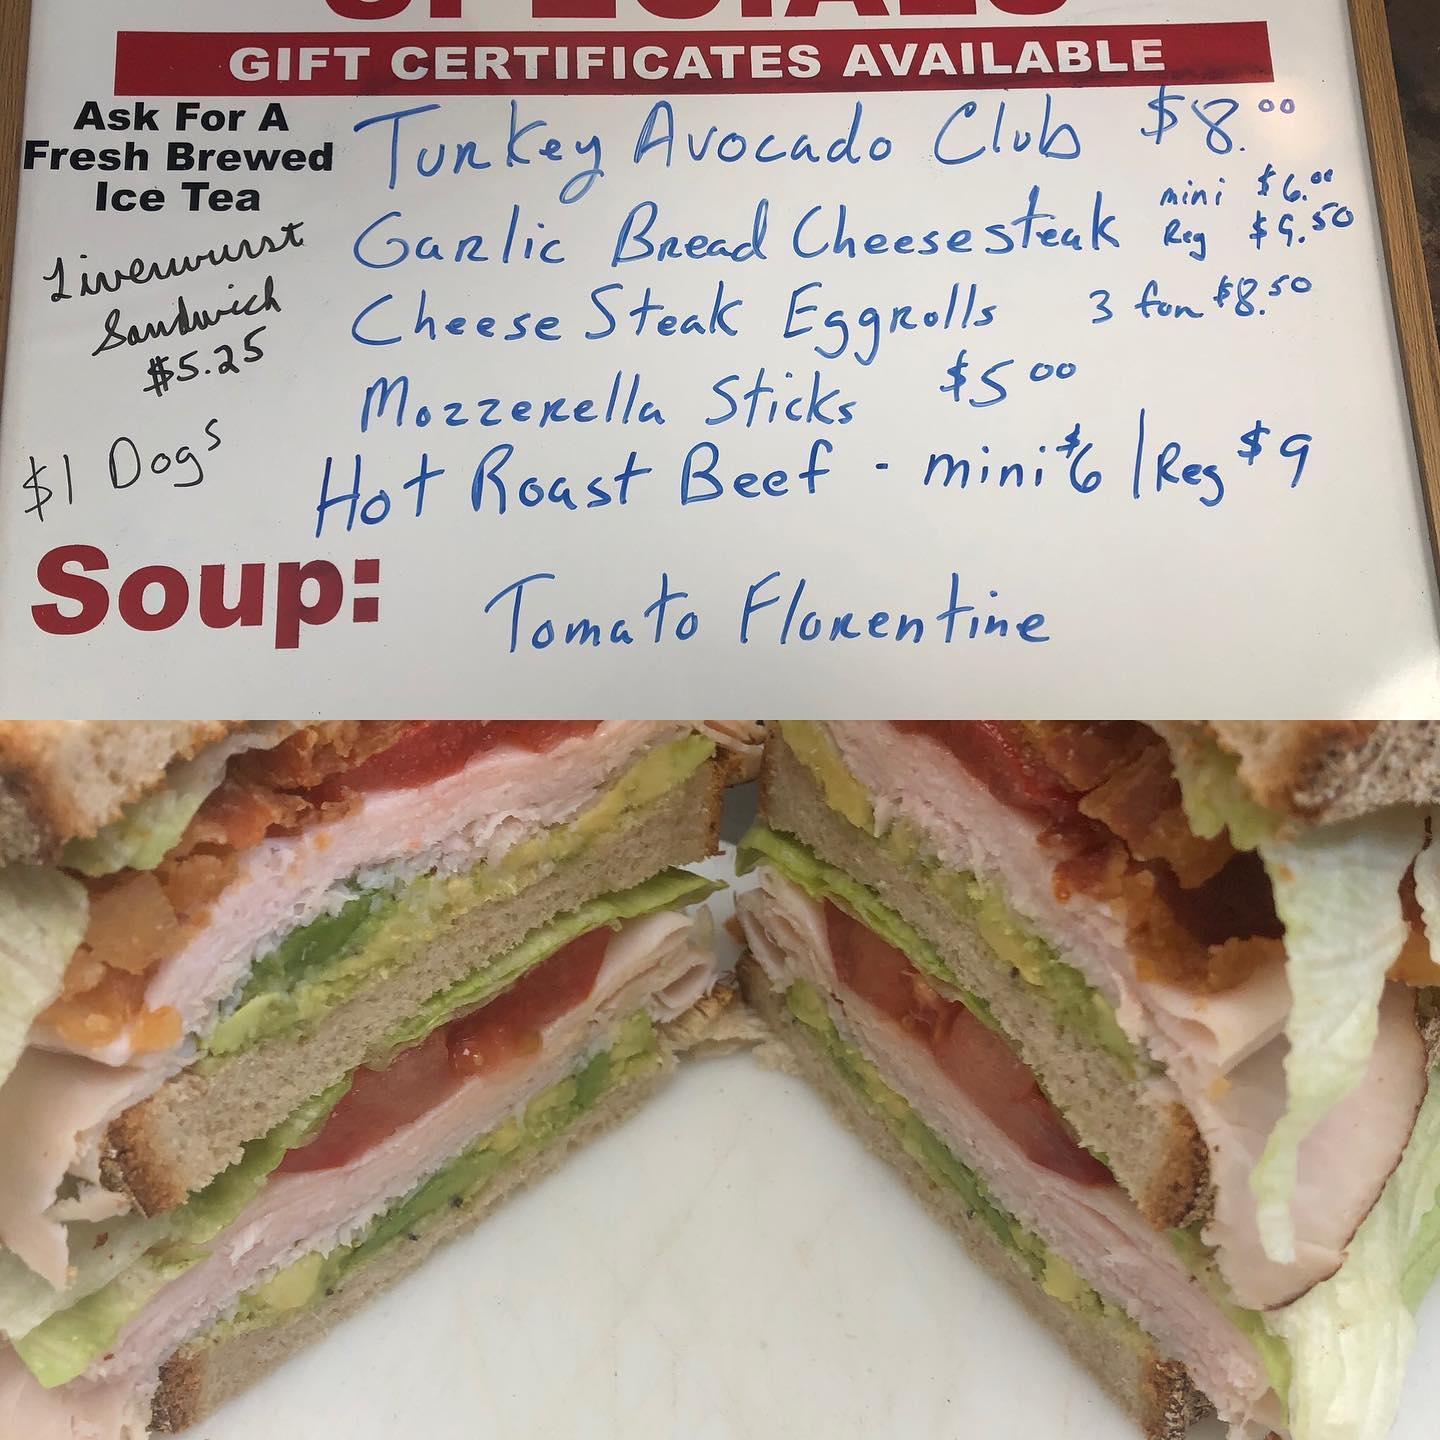 SPECIALS
GIFT CERTIFICATES AVAILABLE
Ask For A
Fresh Brewed
Ice Tea
Liverwurst
Sandwich
$5.25
$1 Dogs
Turkey Avocado Club $8.00
Garlic Bread Cheesesteak mini $6.00
Reg $9.50
Cheese Steak Eggrolls 3 for $8.50
Mozzerella Sticks $5 00
Hot Roast Beef - mini $6 | Reg $9
Soup: Tomato Florentine